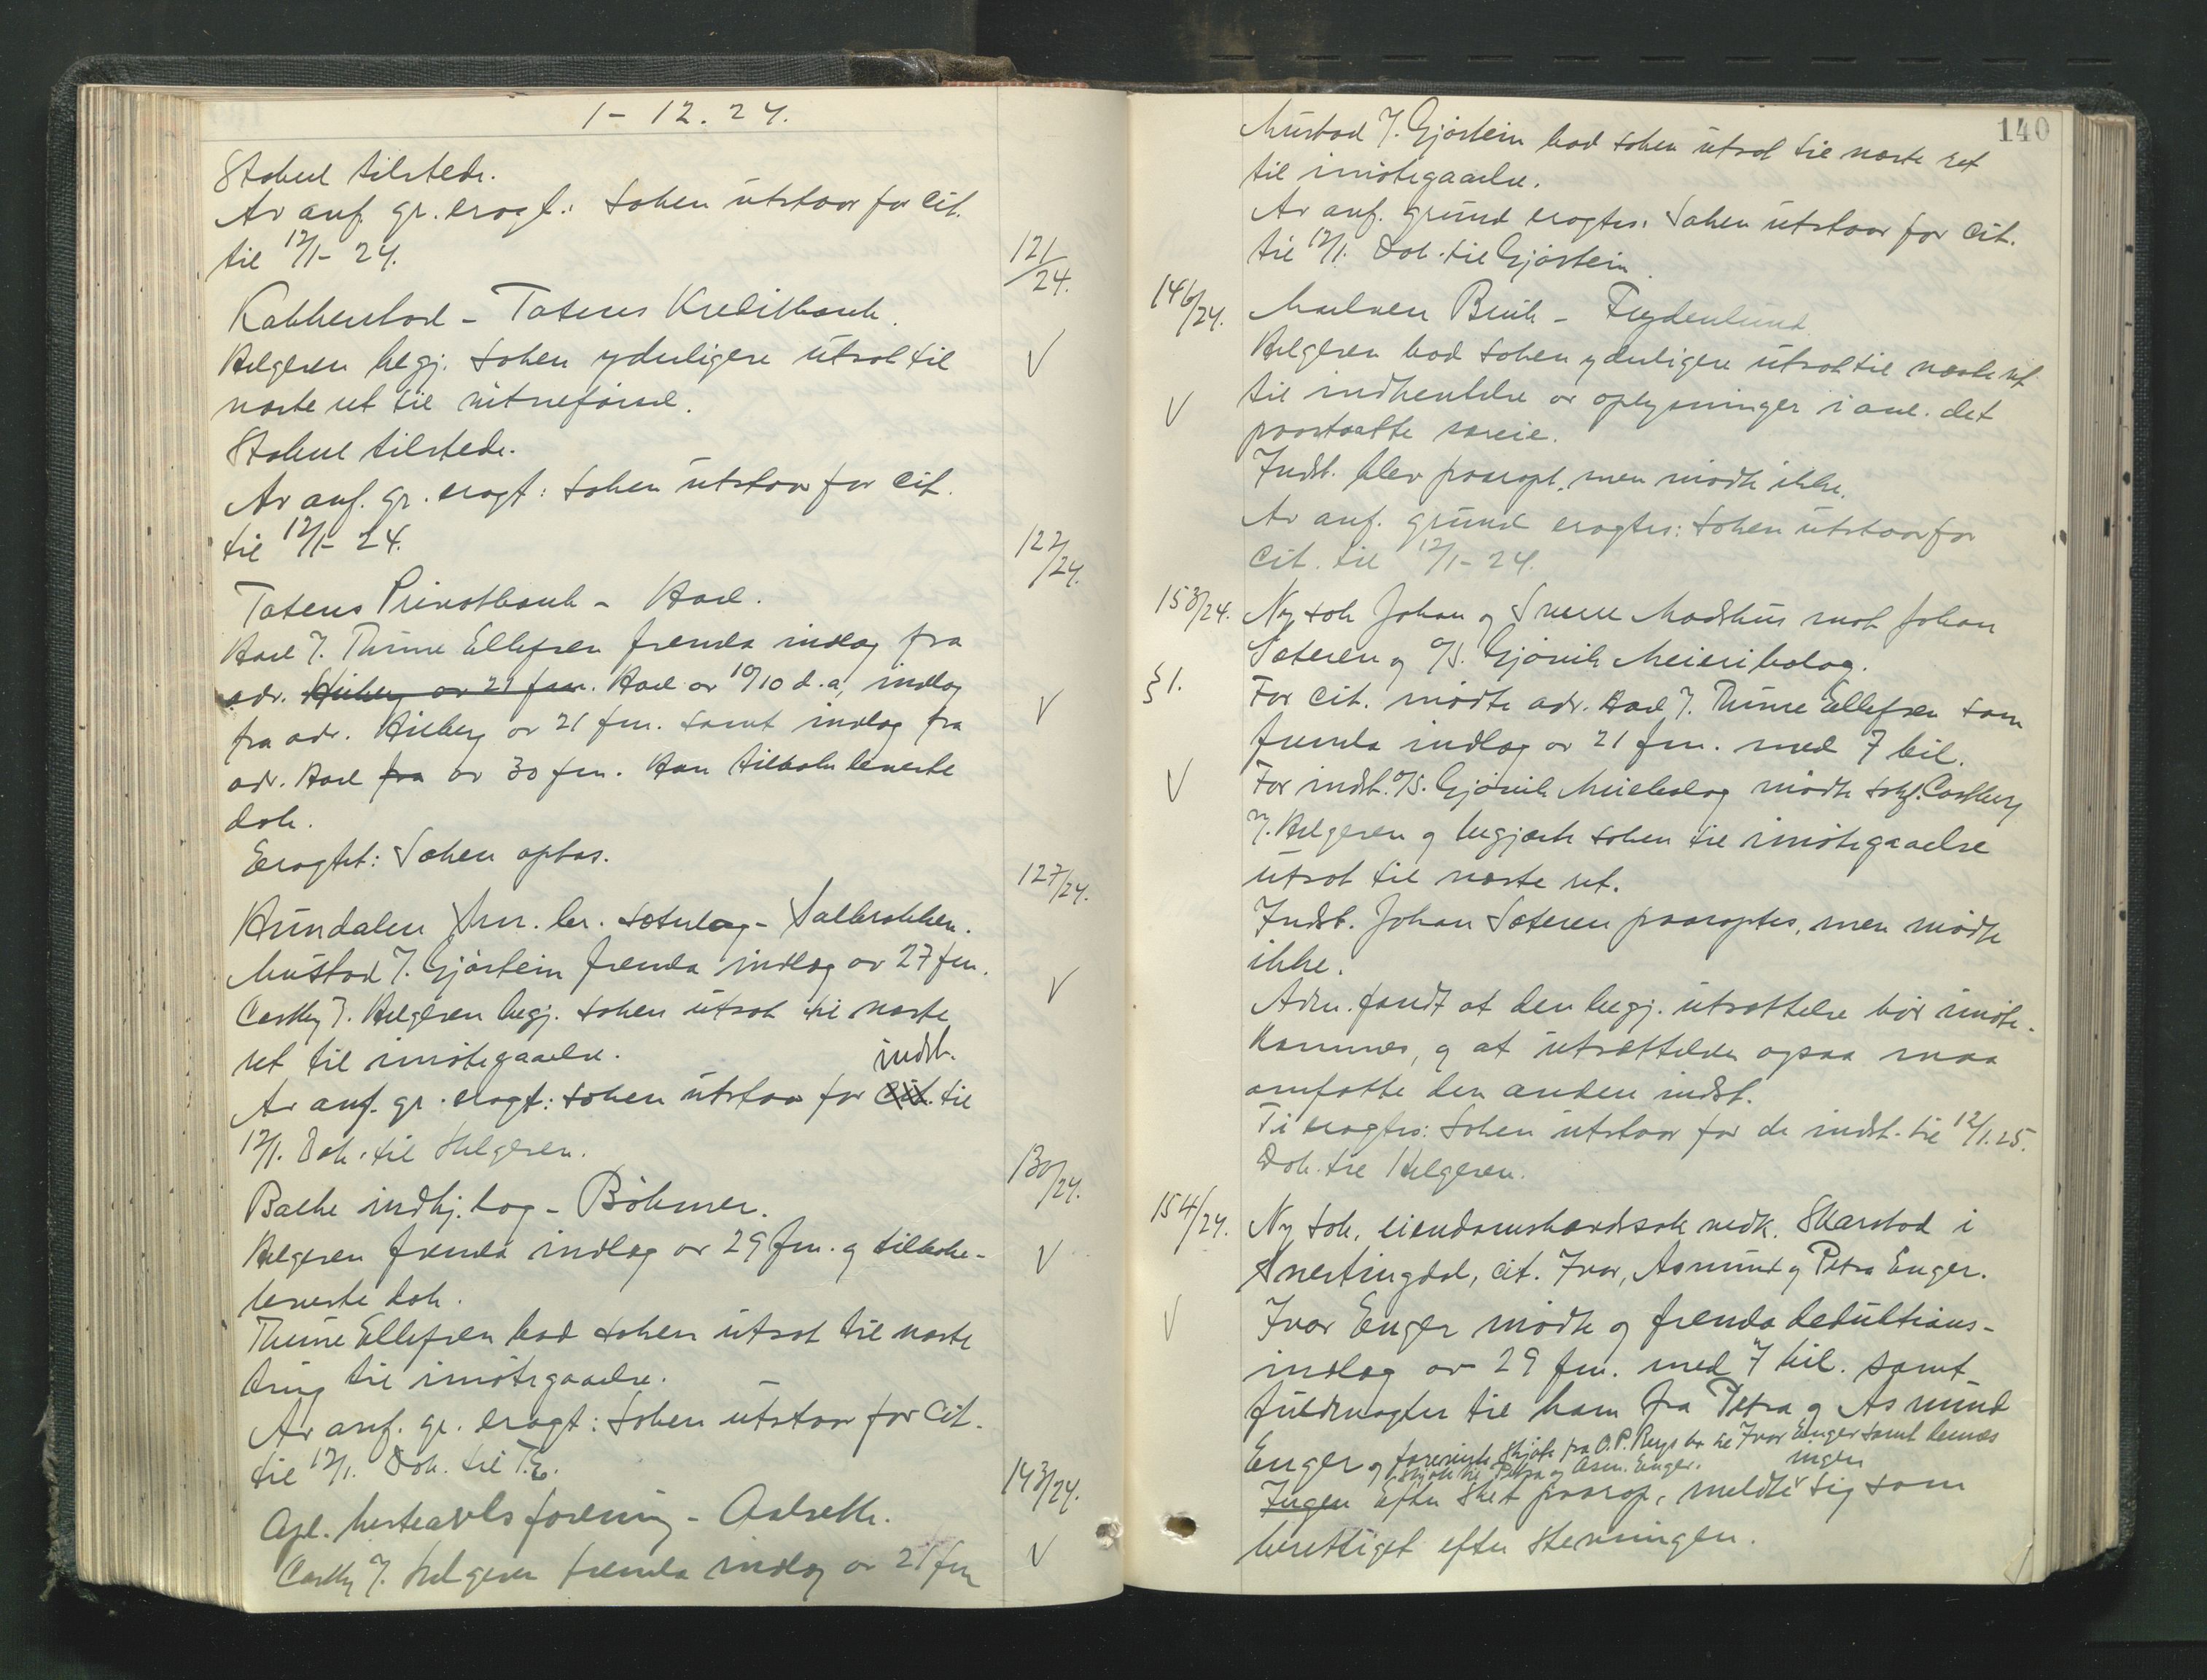 1 - 12. 24.
Stabell tilstede.
Av anf. gr. eragt.: Saken utstaar for cit.
til 12/1- 24.
121/24.
Kakkerstad - Totens Kreditbank.
Helgesen begj. saken yderligere utsat til
næste ret til vitneførsel.
V
Stabell tilstede.
Av anf. gr. eragt: Saken utstaar for cit.
til 12/1- 24.
122/24.
Totens Privatbank - Hoel.
Hoel v. Thune Ellefsen freml. indlæg fra
adr. Huberg av 21 fm. Hoel av 10/10 d.a., indlæg
fra adr. Huberg av 21 fm. samt indlæg fra
V
adr. Hoel fra av 30 fm. Han tilbakeleverte
dok.
Eragtet: Saken optas.
127/24.
Hundalen m. br. sæterlag - Sælbrækken.
Mustad v. Gjørstein freml. indlæg av 27 fm.
V
Castberg v. Helgesen begj. saken utsat til næste
ret til imøtegaaelse.
indst.
Av anf. gr. eragt: saken utstaar for cit. til
12/1. Dok. til Helgesen.
130/24.
Balke indkj.lag - Böhmer.
Helgesen freml. indlæg av 29 fm. og tilbake-
V
leverte dok.
Thune Ellefsen bad saken utsat til næste
ting til imøtegaaelse.
Av anf. gr. eragt: Saken utstaar for cit.
til 12/1. Dok. til T.E.
143/24.
Opl. hesteavlsforening - Aalseth.
Castbg v. Helgesen fremla indlæg av 21 fm
V
140
Mustad v. Gjørstein bad saken utsat til næste ret
til imøtegaaelse.
Av anf. grund eragtes: Saken utstaar for cit.
til 12/1. Dok. til Gjørstein.
146/24.
Maelner Bruk - Frydenlund.
Helgesen bad saken yderligere utsat til næste ret
V
til indhentelse av oplysninger i anl. det
paastaatte særeie.
Indst. blev paaropt, men mødte ikke.
Av anf. grund eragtes: Saken utstaar for
cit. til 12/1- 24.
153/24.
Ny sak Johan og Sverre Madshus mot Johan
Sæteren og A/S. Gjøvik Meieribolag.
§ 1.
For cit. mødte adr. Hoel v. Thune Ellefsen som
fremla indlæg av 21 fm. med 7 bil.
V
For indst. A/S. Gjøvik Meieribolag mødte sakf. Castberg
v. Helgesen og begjærte saken til imøtegaaelse
utsat til næste ret.
Indst. Johan Sæteren paaroptes, men mødte
ikke.
Adm. fandt at den begj. utsættelse bør imøte-
kommes, og at utsættelsen ogsaa maa
omfatte den anden indst.
Ti eragtes: Saken utstaar for de indst. til 12/1.25.
Dok. til Helgesen.
154/24.
Ny sak, eiendomshævdssak vedk. Skarstad i
Snertingdal, cit. Ivar, Asmund og Petra Enger.
V
Ivar Enger mødte og fremla deduktions-
indlæg av 29 fm. med 7 bil. samt
fuldmagter til ham fra Petra og Asmund
Enger og foreviste skjøte fra O.P. til Ivar Enger samt dennes
skjøte til Petra og Asm. Enger.
ingen
Ingen Efter sket paarop, meldte sig som
berettiget efter stevningen.